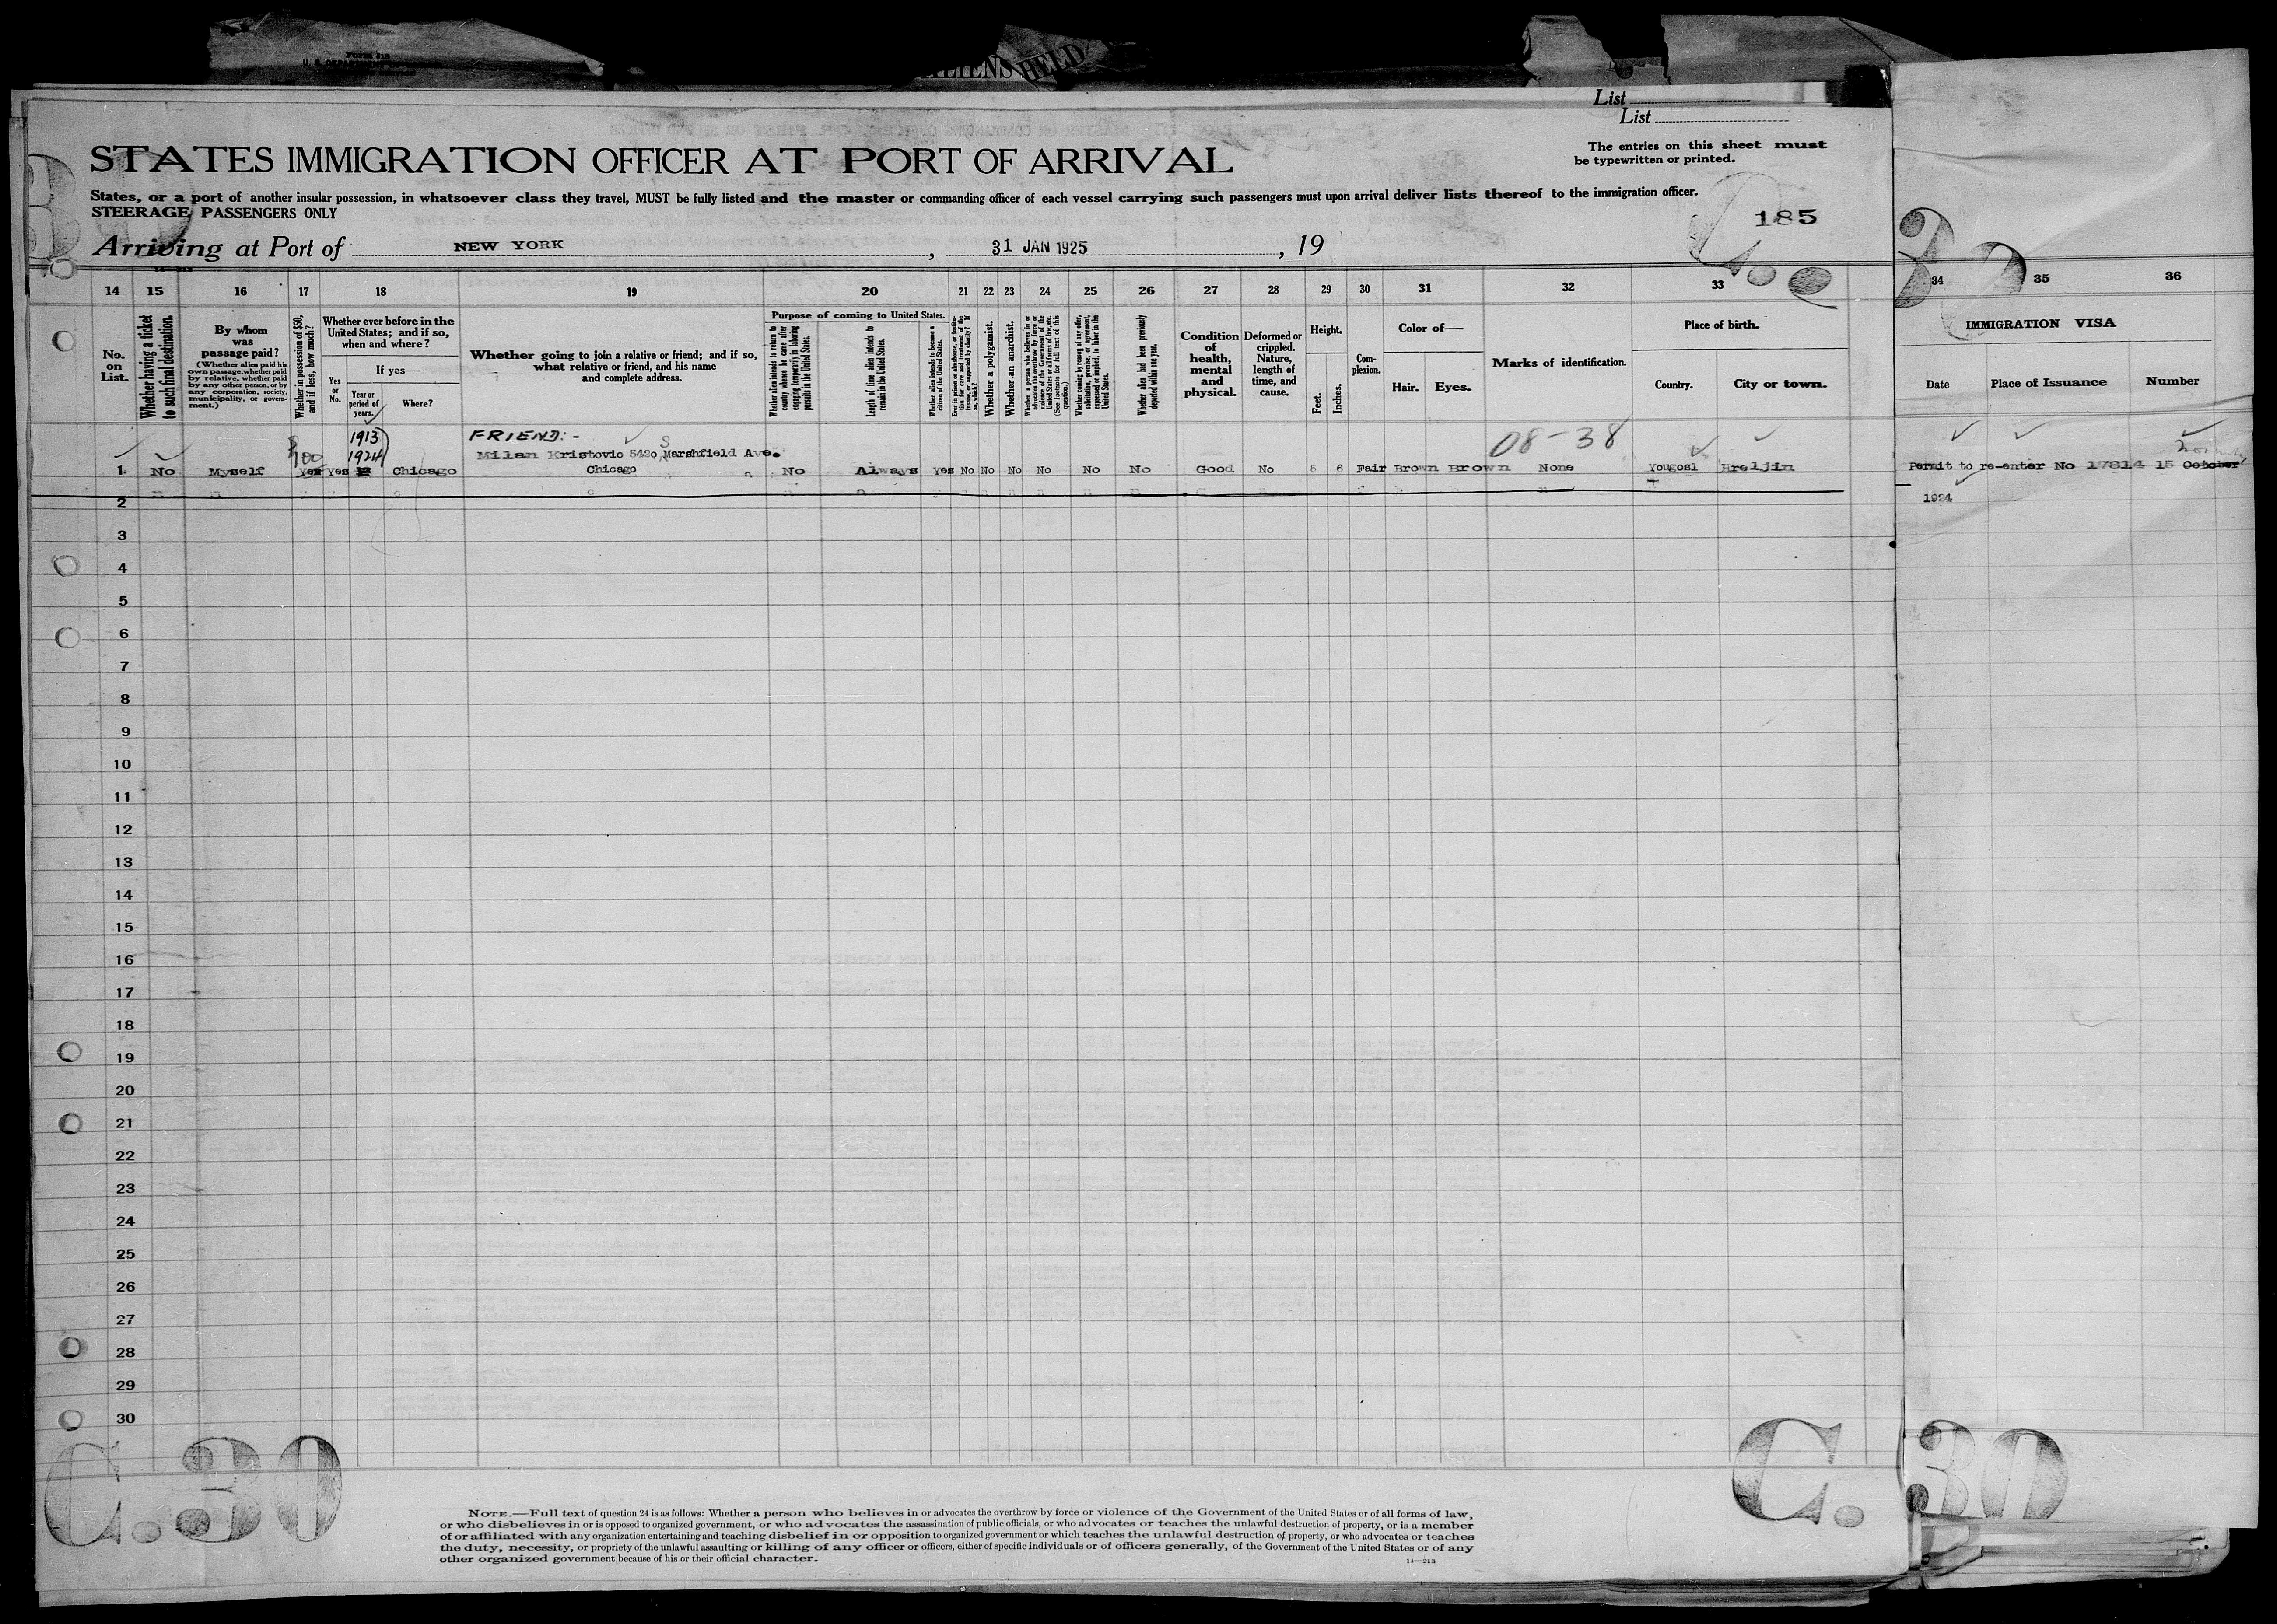 Form 218
ALIENS HELD
List
List
The entries on this sheet must
be typewritten or printed.
STATES IMMIGRATION OFFICER AT PORT OF ARRIVAL
States, or a port of another insular possession, in whatsoever class they travel, MUST be fully listed and the master or commanding officer of each vessel carrying such passengers must upon arrival deliver lists thereof to the immigration officer.
STEERAGE PASSENGERS ONLY
185
Arriving at Port of NEW YORK , 31 JAN 1925 , 19
14 15 16 17 18 19 20 21 22 23 24 25 26 27 28 29 30 31 32 33 34 35 36
No. on List.
Whether having a ticket to such final destination.
By whom was passage paid?
(Whether alien paid his own passage, whether paid by relative, whether paid by any other person, or by any corporation, society, municipality, or government.)
Whether in possession of $50, and if less, how much?
Whether ever before in the United States; and if so, when and where?
Yes or No.
If yes—
Year or period of years.
Where?
Whether going to join a relative or friend; and if so, what relative or friend, and his name and complete address.
Purpose of coming to United States.
Whether alien intends to return to country whence he came after engaging temporarily in laboring pursuits in the United States.
Length of time alien intends to remain in the United States.
Whether alien intends to become a citizen of the United States.
Ever in prison or almshouse, or institution for care and treatment of the insane, or supported by charity? If so, which?
Whether a polygamist.
Whether an anarchist.
Whether a person who believes in or advocates the overthrow by force or violence of the Government of the United States or all forms of law, etc. (See footnote for full text of this question.)
Whether coming by reason of any offer, solicitation, promise, or agreement, expressed or implied, to labor in the United States.
Whether alien had been previously deported within one year.
Condition of health, mental and physical.
Deformed or crippled. Nature, length of time, and cause.
Height.
Feet.
Inches.
Complexion.
Color of—
Hair.
Eyes.
Marks of identification.
Place of birth.
Country.
City or town.
IMMIGRATION VISA
Date
Place of Issuance
Number
1913
1924
FRIEND:-
08-38
Milan Kristovic 5420 S Marshfield Ave.
1 No Myself Yes Yes Chicago Chicago No Always Yes No No No No No No Good No 5 6 Fair Brown Brown None Yougosl Hreljin Permit to re-enter No 17814 15 October
1924
2
3
4
5
6
7
8
9
10
11
12
13
14
15
16
17
18
19
20
21
22
23
24
25
26
27
28
29
30
C.30
C.30
NOTE.—Full text of question 24 is as follows: Whether a person who believes in or advocates the overthrow by force or violence of the Government of the United States or of all forms of law,
or who disbelieves in or is opposed to organized government, or who advocates the assassination of public officials, or who advocates or teaches the unlawful destruction of property, or is a member
of or affiliated with any organization entertaining and teaching disbelief in or opposition to organized government or which teaches the unlawful destruction of property, or who advocates or teaches
the duty, necessity, or propriety of the unlawful assaulting or killing of any officer or officers, either of specific individuals or of officers generally, of the Government of the United States or of any
other organized government because of his or their official character.
14—213